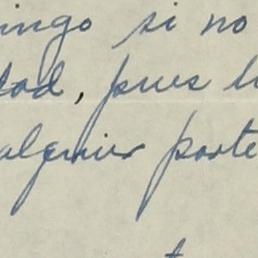 ingo si no
dad, pues l
alguier parte